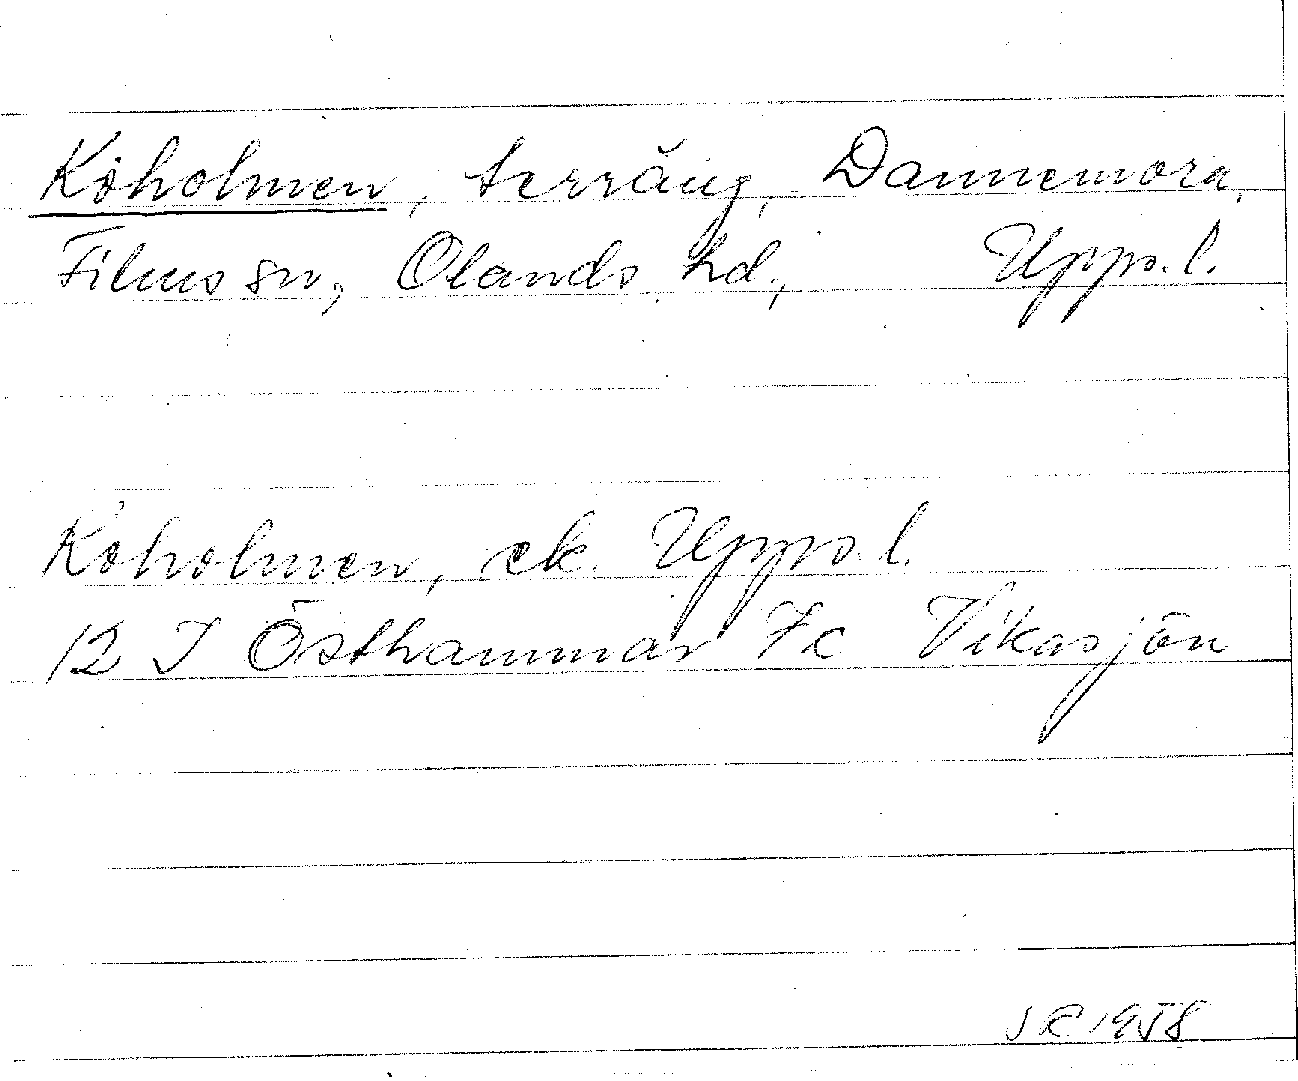 Köholmen, terräng, Dannemora,
Films sn, Olands hd, Upps. l.
Köholmen, ek. Upps. l.
12 I Östhammar 7c Vikasjön
JR 1958